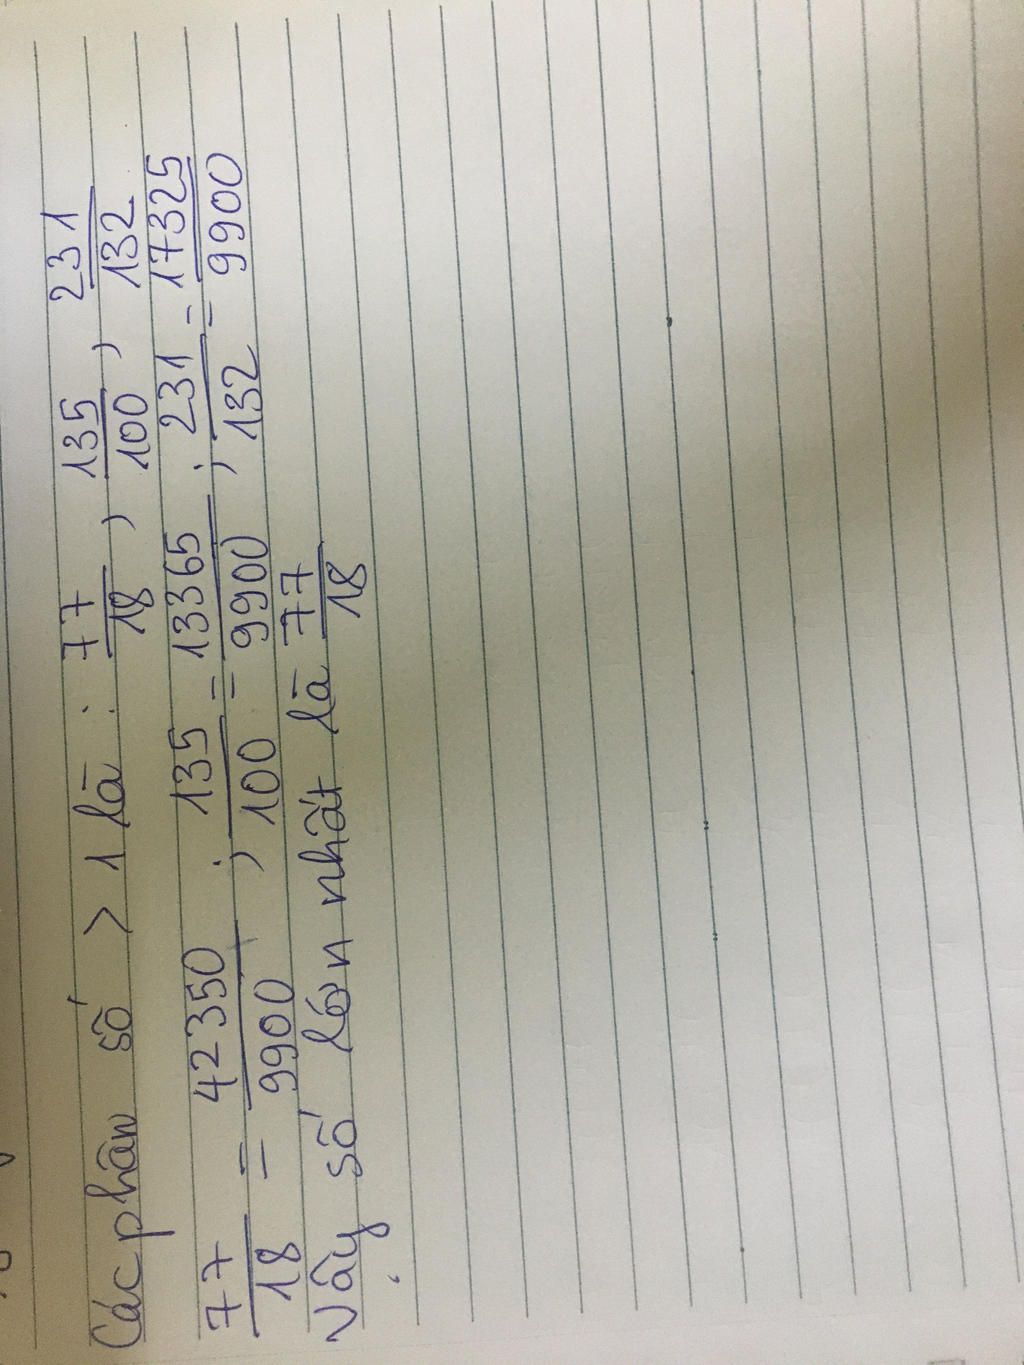 Các phân số > 1 là : 77/18 , 135/100 , 231/132
77/18 = 42350/9900 ; 135/100 = 13365/9900 ; 231/132 = 17325/9900
Vậy số lớn nhất là 77/18